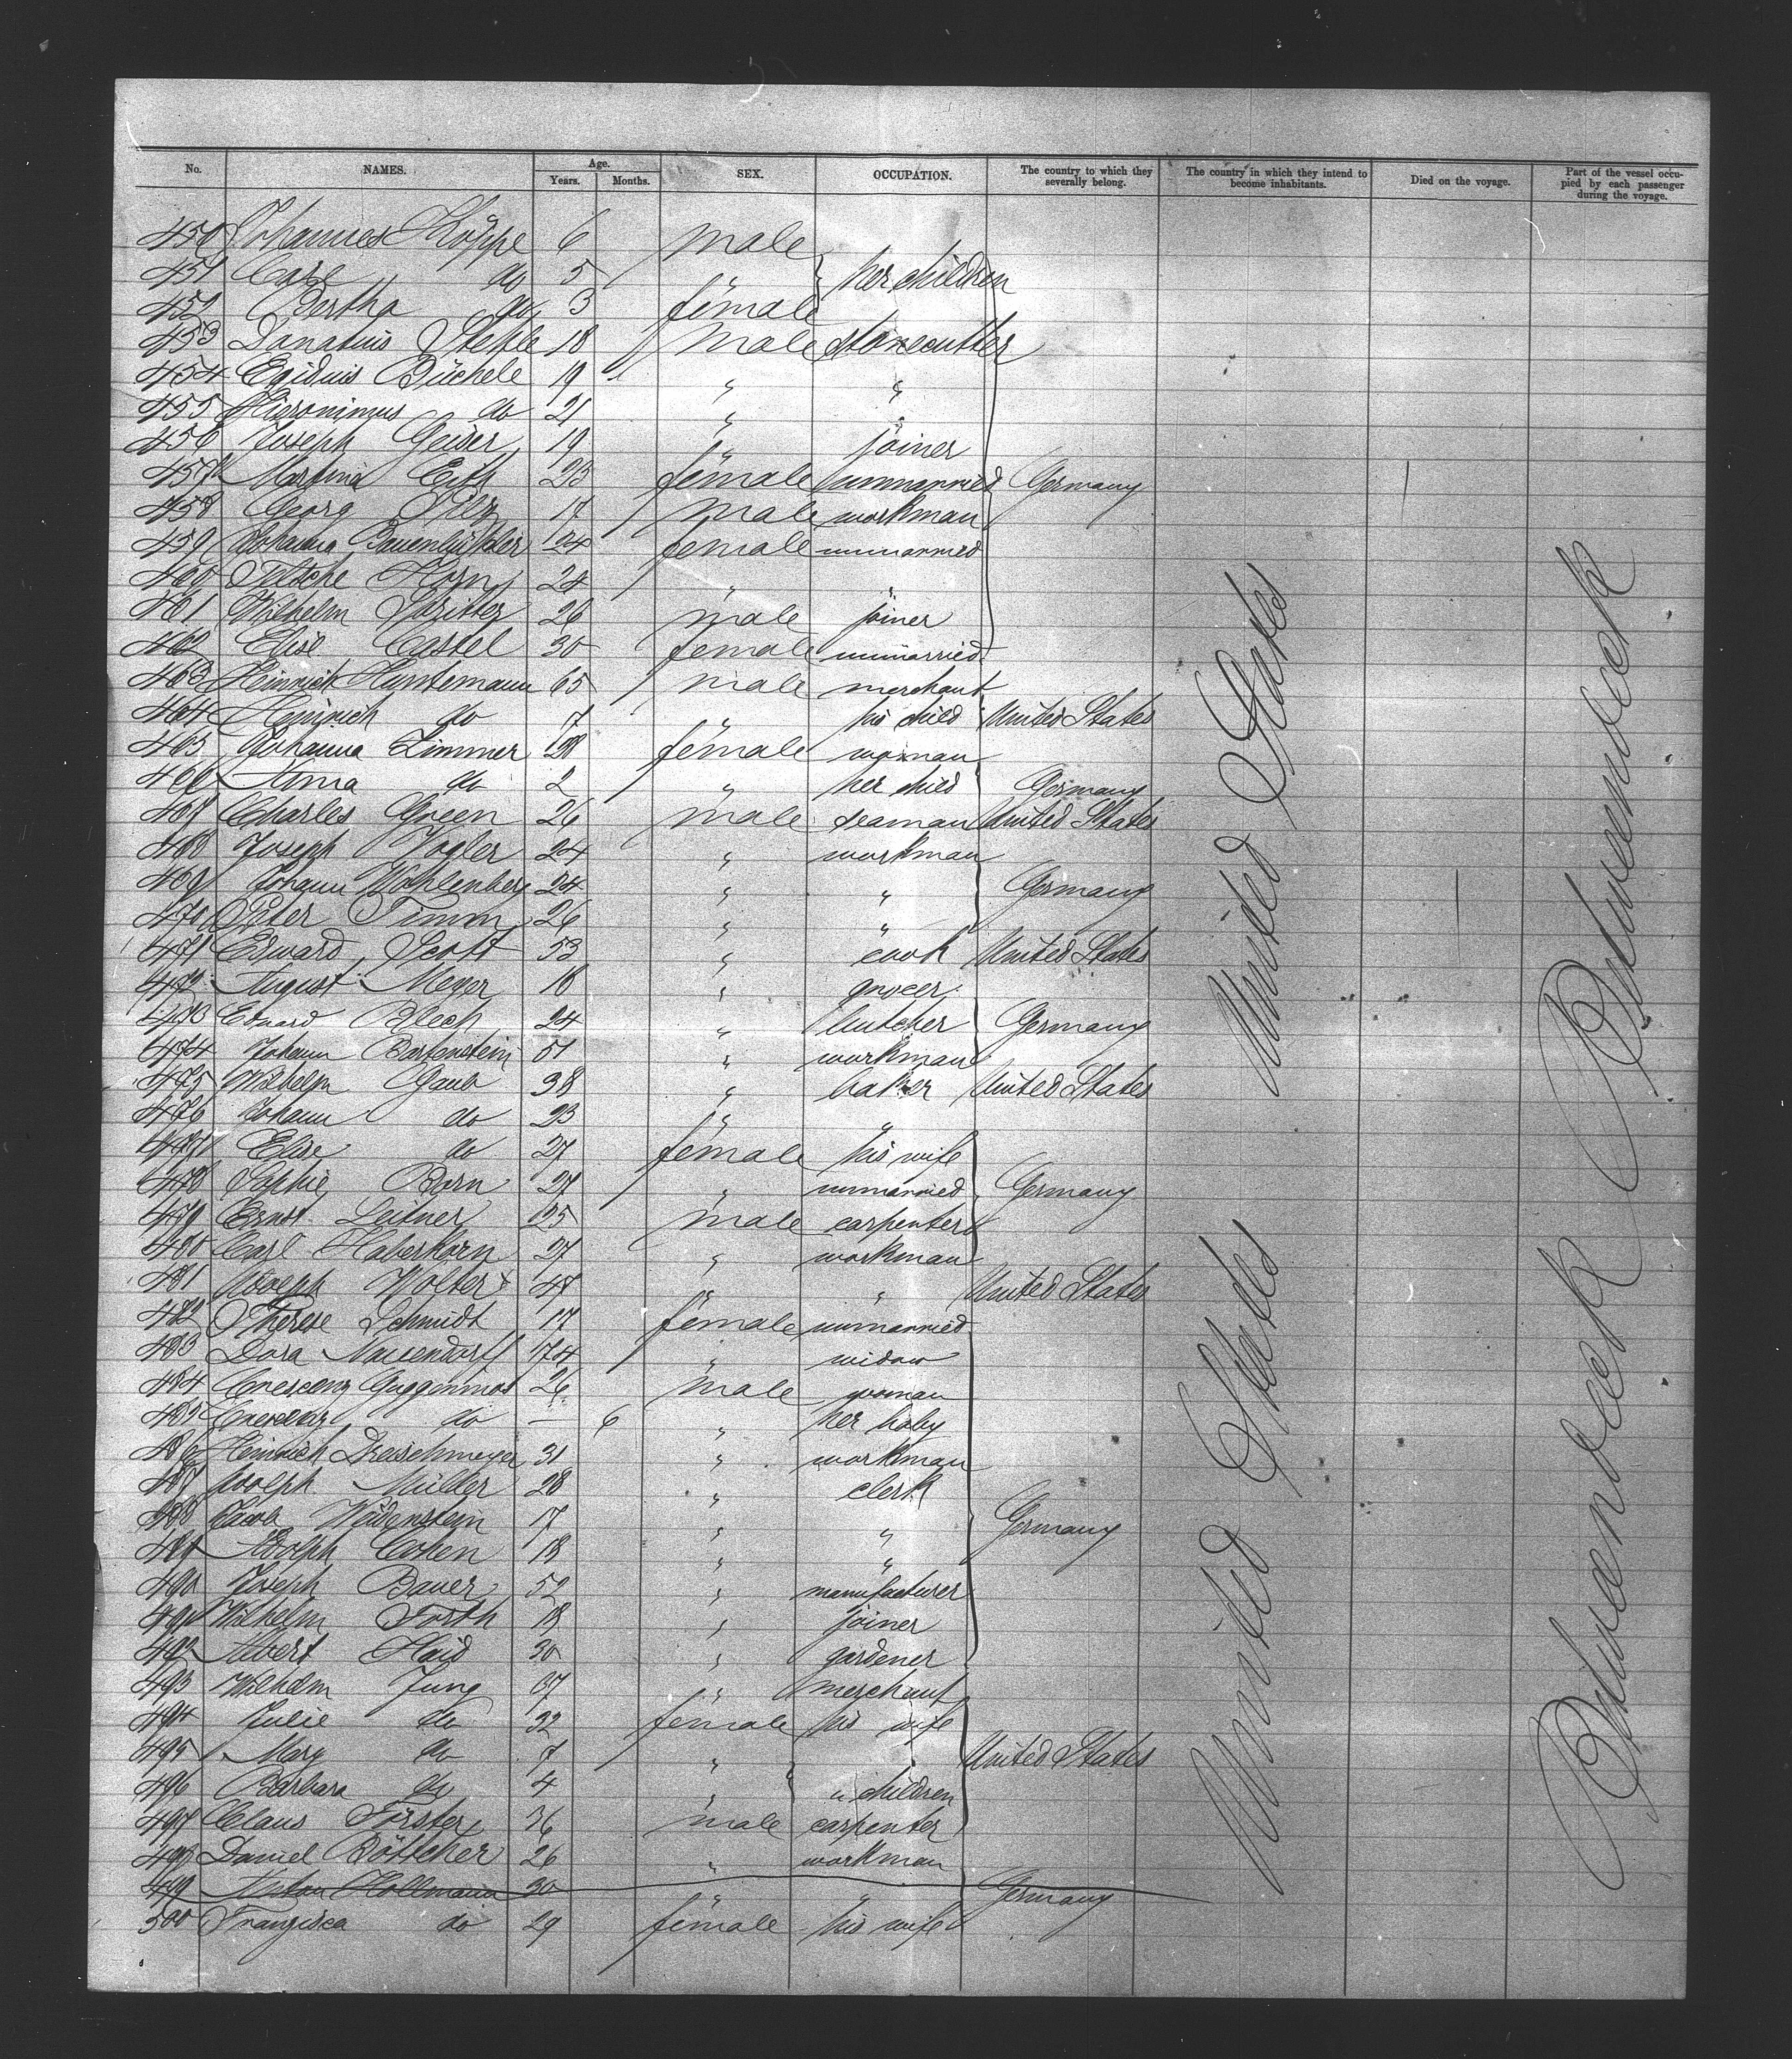 No. NAMES. Age. Years. Months. SEX. OCCUPATION. The country to which they severally belong. The country in which they intend to become inhabitants. Died on the voyage. Part of the vessel occupied by each passenger during the voyage.
450 Johannes Köppe 6 male
451 Carl do 5 " her children
452 Bertha do 3 female
453 Donatus Stehle 18 male stonecutter
454 Egidius Büchele 19 " "
455 Hieronimus do 21 " "
456 Joseph Geiser 19 " joiner
457 Martina Eith 23 female unmarried Germany
458 Georg 17 male workman
459 Johanna 24 female unmarried
460 Horn 24 " "
461 Wilhelm 26 male joiner
462 Elise Castel 30 female unmarried
463 Heinrich Huntemann 65 male merchant
464 Heinrich do 7 " his child United States
465 Johanna Zimmer 28 female woman
466 Anna do 2 " her child Germany
467 Charles Green 26 male seaman United States
468 Joseph Vogler 24 " workman
469 Johann Wohlenberg 24 " " Germany
470 Peter Timm 26 " "
471 Edward Scott 53 " cook United States
472 August Meyer 18 " grocer
473 Eduard Blech 24 " butcher Germany
474 Johann Bartenstein 51 " workman
475 Wilhelm Gaub 38 " baker United States
476 Johann do 23 " "
477 Elise do 27 female his wife
478 Sophie Born 27 " unmarried Germany
479 Ernst Leitner 25 male carpenter
480 Carl Haberkorn 27 " workman
481 Adolph Wolter 48 " " United States
482 Therese Schmidt 17 female unmarried
483 Dora Nauendorff 74 " widow
484 Crescenz Guggenmos 26 male woman
485 Crescenz do — 6 " her baby
486 Heinrich Dreischmeyer 31 " workman
487 Adolph Müller 28 " clerk
488 Jacob Weidenstein 17 " " Germany
489 Adolph Cohen 18 " "
490 Joseph Bauer 52 " manufacturer
491 Wilhelm Forth 18 " joiner
492 Albert Haid 30 " gardener
493 Wilhelm Jung 37 " merchant
494 Julie do 32 female his wife
495 Mary do 7 " United States
496 Barbara do 4 " " children
497 Claus Förster 36 male carpenter
498 Daniel Böttcher 26 " workman
499 Anton Hollmann 30 " " Germany
500 Franzisca do 29 female his wife
United States
United States
Betweendeck
Betweendeck